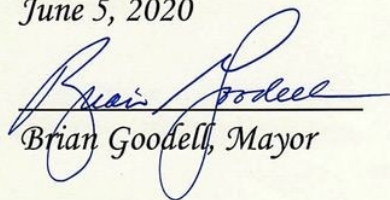 June 5, 2020
Brian Goodell
Brian Goodell, Mayor